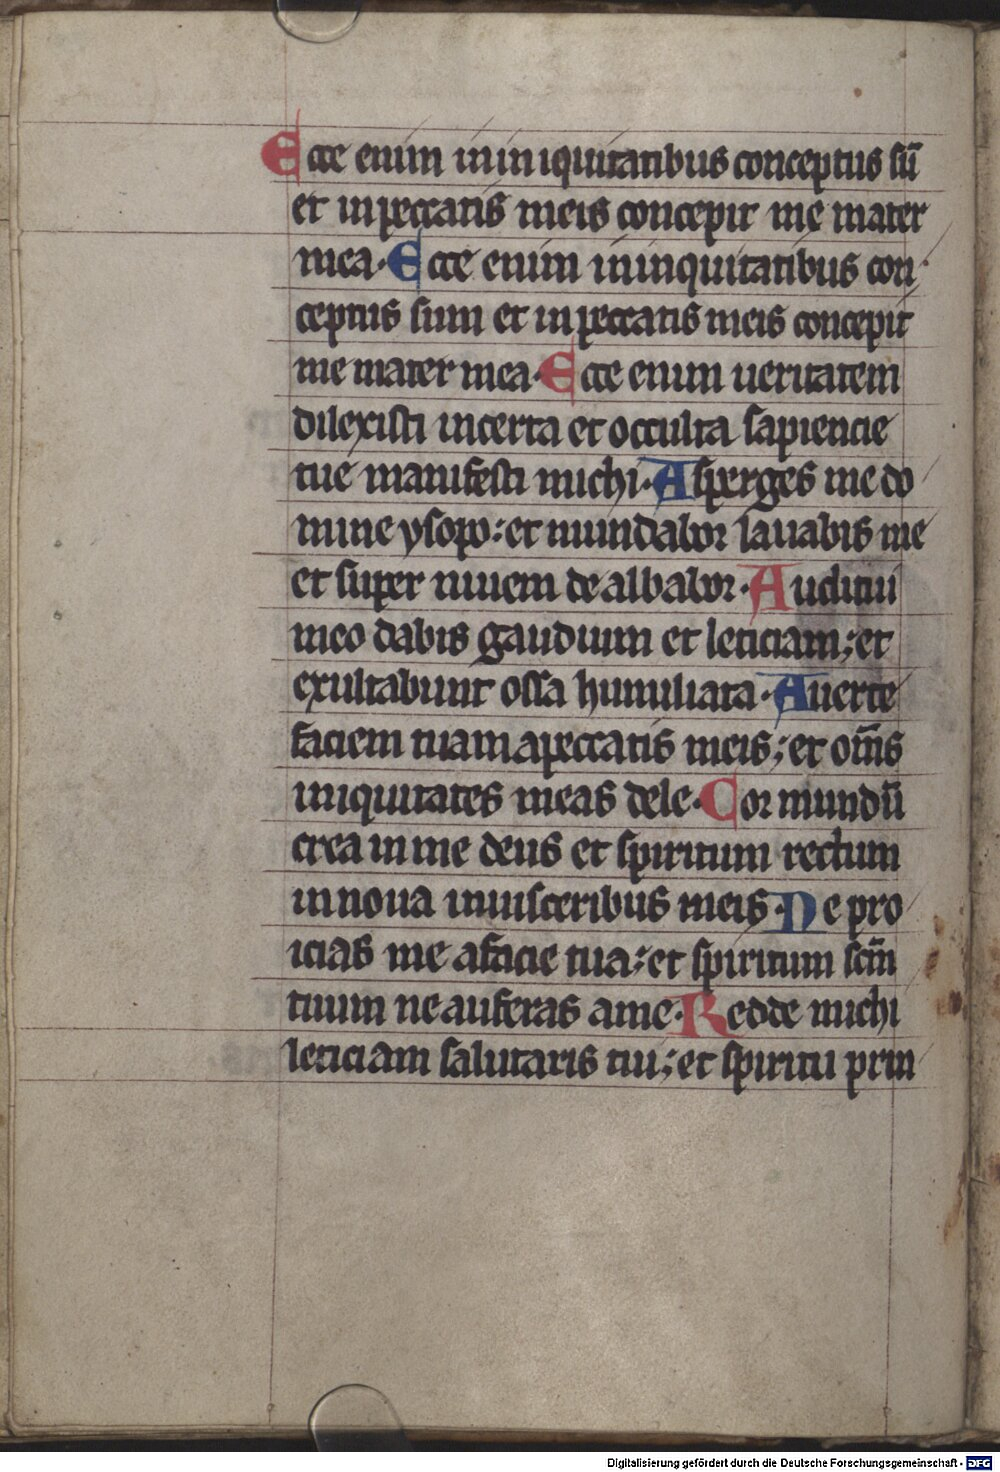 Ecce enim in iniquitatibus conceptus sū
et in peccatis meis concepit me mater
mea. Ecce enim in inquitatibus con
ceptus sum et in peccatis meis concepit
me mater mea. Ecce enim ueritatem
dilexisti incerta et occulta sapiencie
tue manifesti michi. Asperges me do
mine ysopo: et mundabor lauabis me
et super niuem de albabor. Auditui
meo dabis gaudium et leticiam; et
exultabunt ossa humiliata. Auerte
faciem tuam a peccatis meis; et om̄s
iniquitates meas dele. Cor mundū
crea in me deus et spiritum rectum
innoua in uisceribus meis. Ne pro
icias me a facie tua: et spiritum scm̄
tuum ne auferas a me. Redde michi
leticiam salutaris tui; et spiritu prin
Digitalisierung gefördert durch die Deutsche Forschungsgemeinschaft - DFG